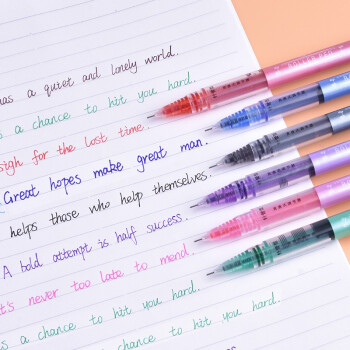 has a quiet and lonely world.
s a chance to hit you hard.
sigh for the lost time.
Great hopes make great man.
helps those who help themselves.
A bold attempt is half success.
t's never too late to mend.
s a chance to hit you hard.
a chance to hit you hard.